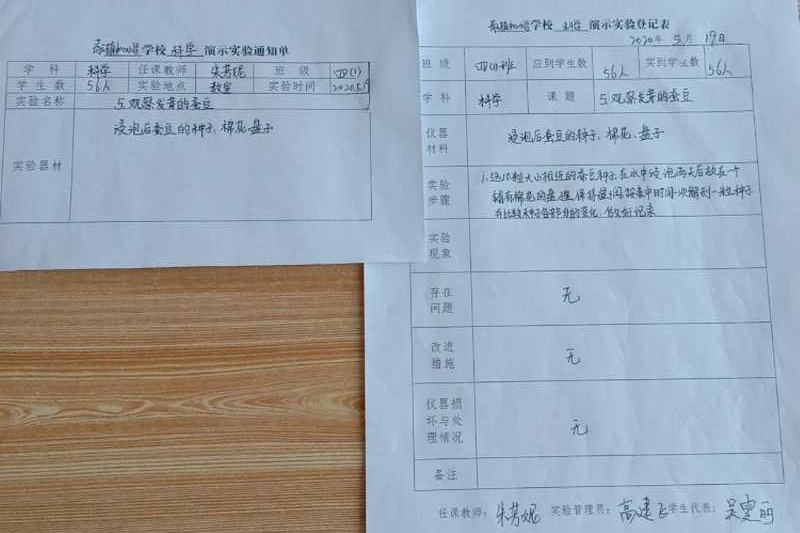 学校 科学 演示实验通知单
学科 科学 任课教师 朱芳妮 班级 四(1)
学生数 56人 实验地点 教室 实验时间 2020.5.19
实验名称 5.观察发芽的蚕豆
实验器材 浸泡后蚕豆的种子、棉花、盘子
学校 科学 演示实验登记表
2020年5月19日
班级 四(1)班 应到学生数 56人 实到学生数 56人
学科 科学 课题 5.观察发芽的蚕豆
仪器材料 浸泡后蚕豆的种子、棉花、盘子
实验步骤 1.选10粒大小相近的蚕豆种子,在水中浸泡两天后放在一个
铺有棉花的盘里,保持湿润,按表中时间一次解剖一粒种子
并比较种子各部分的变化,做好记录
实验现象
存在问题 无
改进措施 无
仪器损坏与处理情况 无
备注
任课教师:朱芳妮 实验管理员:高建飞 学生代表:吴雯丽